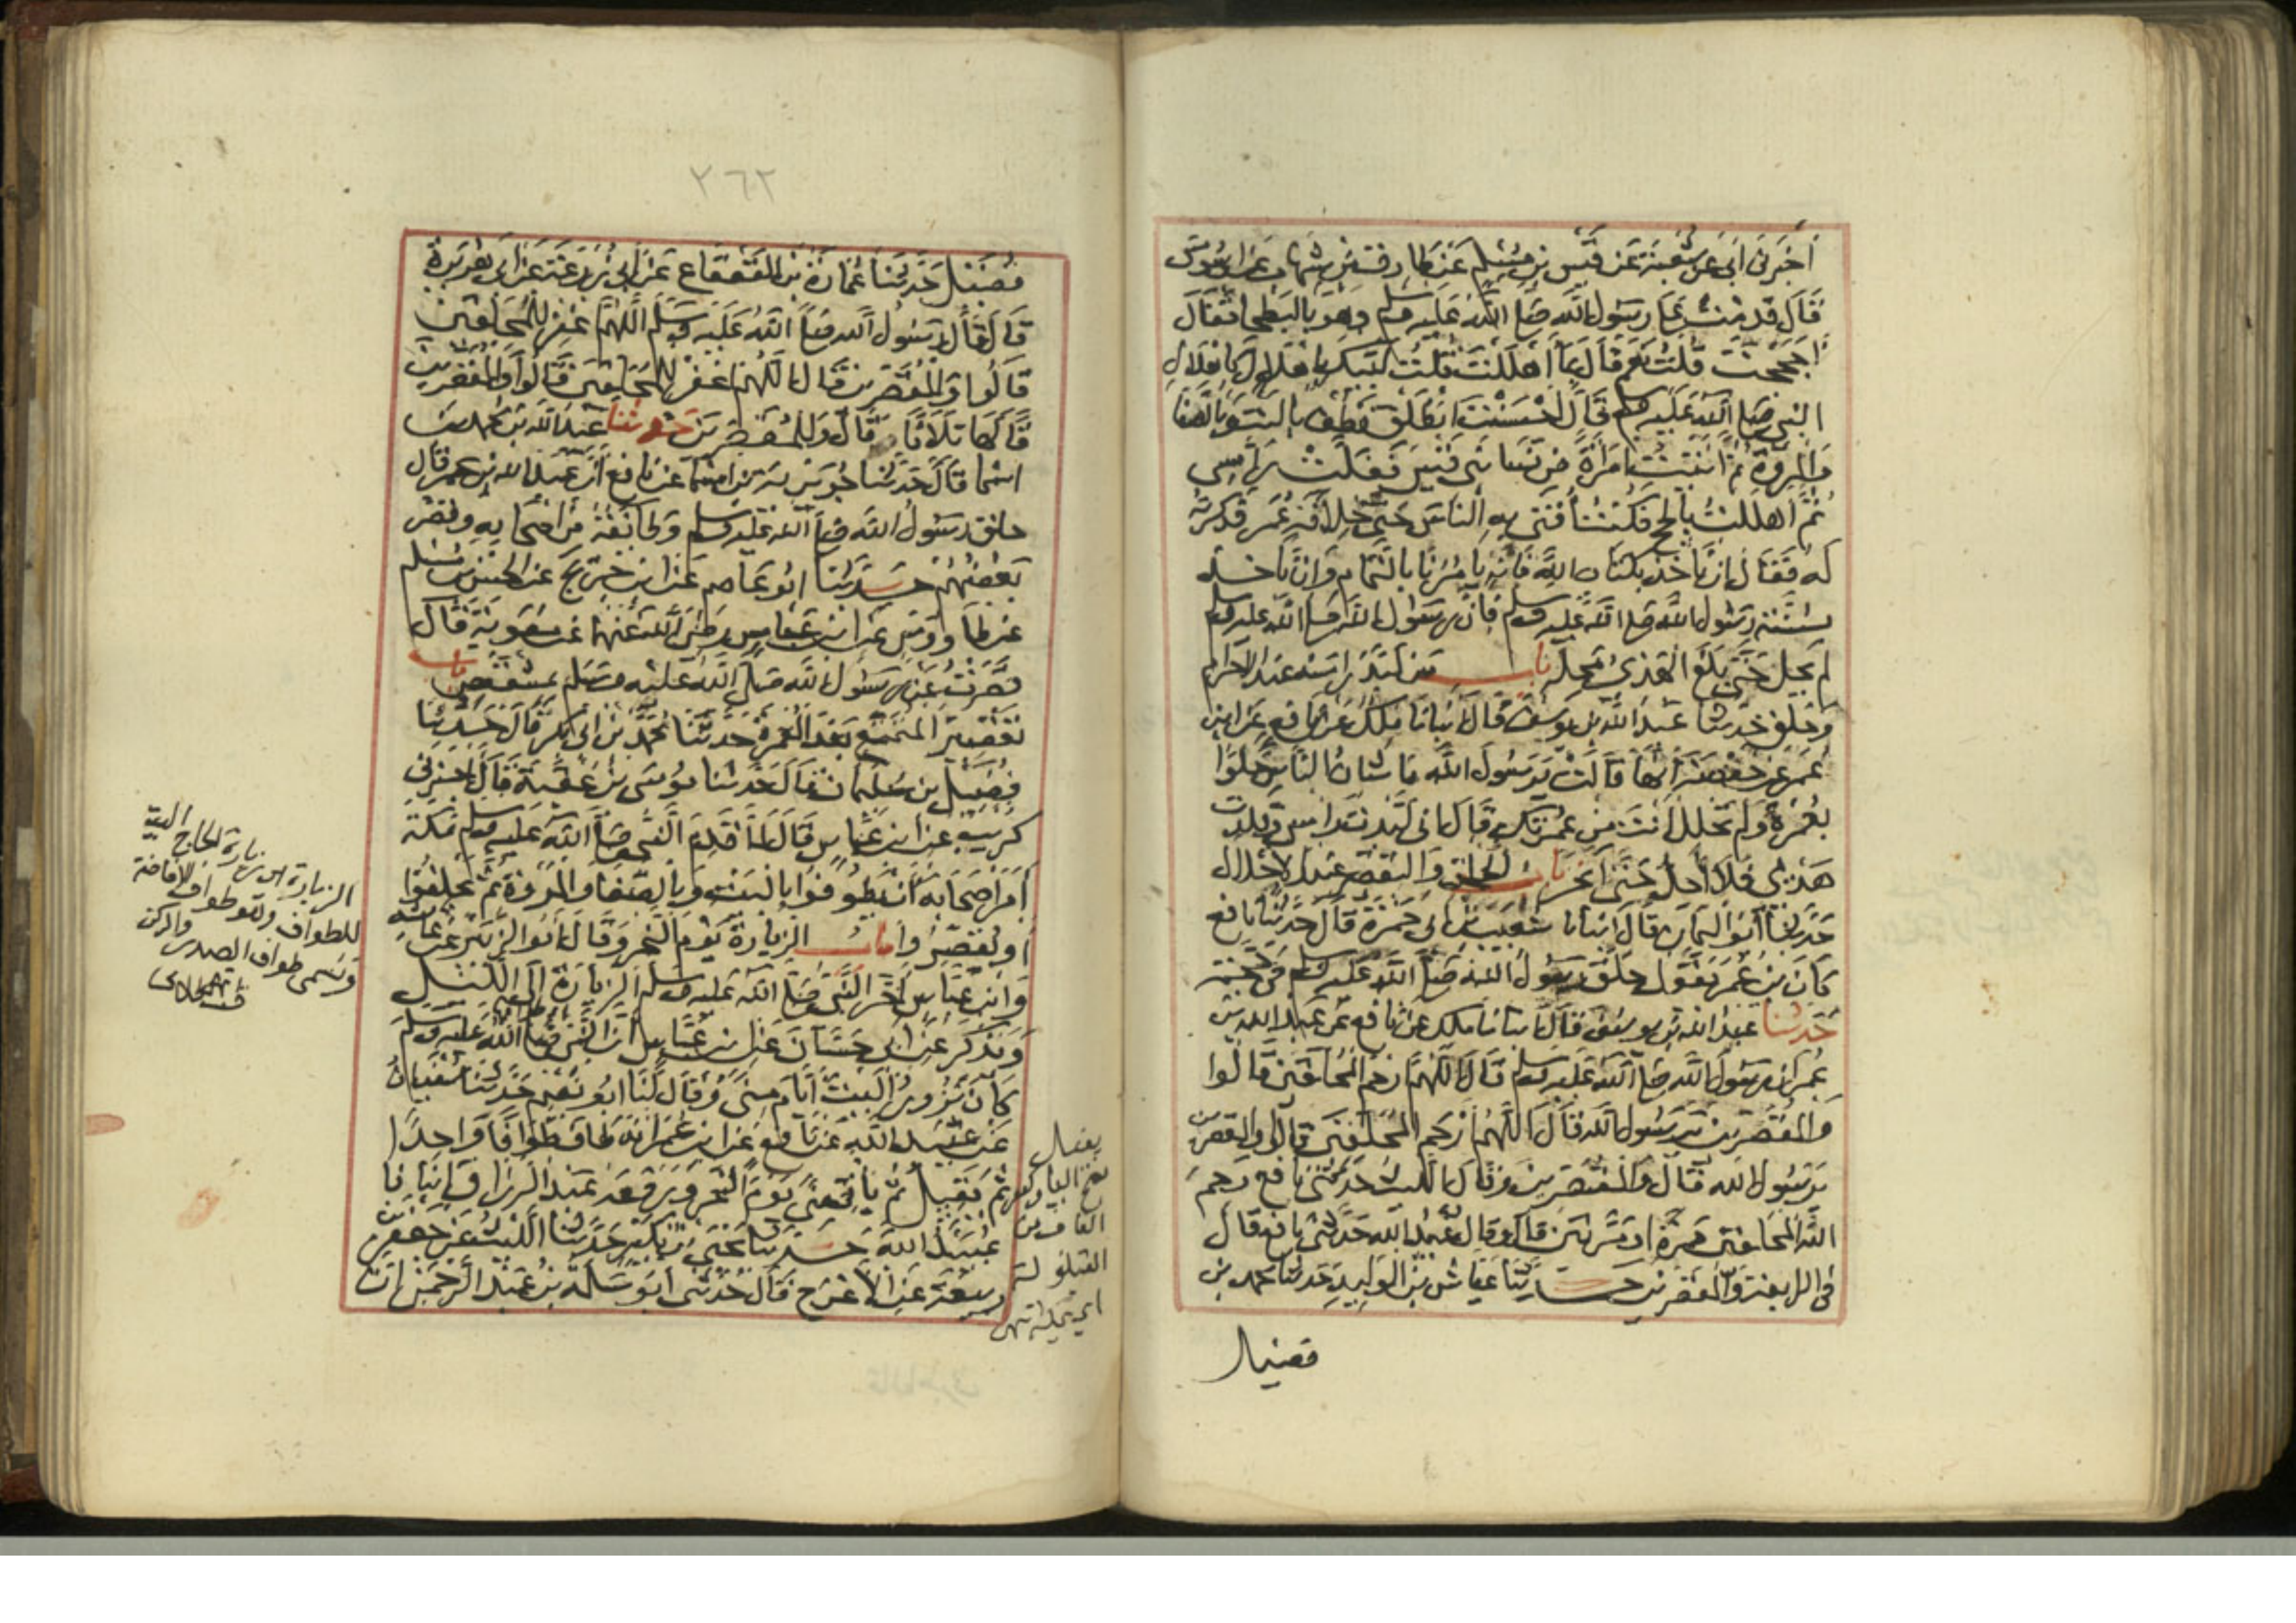 أخبرنى أبى عن شعبة عن قيس بن مسلم عن طارق بن شهاب عن أبى موسى
قال قدمت على رسول الله صلى الله عليه وسلم وهو بالبطحا فقال
أحججت قلت نعم قال بما أهللت قلت لبيك بإهلال كإهلال
النبي صلى الله عليه وسلم قال أحسنت انطلق فطف بالبيت وبالصفا
والمروة ثم أتيت امرأة من نسا بنى قيس ففلت راسى
ثم أهللت بالحج فكنت أفتى به الناس حتى خلافة عمر فذكرته
له فقال إن ناخذ بكتاب الله فإنه يامرنا بالتمام وإن ناخذ
بسنة رسول الله صلى الله عليه وسلم فإن رسول الله صلى الله عليه وسلم
لم يحل حتى بلغ الهدى محله باب من لبد راسه عند الاحرام
وحلق حدثنا عبد الله بن يوسف قال انبانا ملك عن نافع عن ابن
عمر عن حفصة أنها قالت يرسول الله ما شان الناس حلوا
بعمرة ولم تحلل أنت من عمرتك قال انى لبدت راسى وقلدت
هديى فلا أحل حتى أنحر باب الحلق والتقصير عند الاحلال
حدثنا أبو اليمان قال انبانا شعيب بن أبى حمزة قال حدثنا نافع
كان بن عمر يقول حلق رسول الله صلى الله عليه وسلم فى حجته
حدثنا عبد الله بن يوسف قال انبانا ملك عن نافع عن عبد الله بن
عمر ان رسول الله صلى الله عليه وسلم قال اللهم ارحم المحلقين قالوا
والمقصرين يرسول الله قال اللهم ارحم المحلقين قالوا والمقصرين
يرسول الله قال والمقصرين وقال الليث حدثنى نافع رحم
الله المحلقين مرة او مرتين قال وقال عبيد الله حدثنى نافع قال
فى الرابعة والمقصرين حدثنا عياش بن الوليد حدثنا محمد بن
فضيل
٢٦٢
فضيل حدثنا عمارة بن القعقاع عن أبى زرعة عن أبى هريرة
قال قال رسول الله صلى الله عليه وسلم اللهم اغفر للمحلقين
قالوا وللمقصرين قال اللهم اغفر للمحلقين قالوا وللمقصرين
قالها ثلاثا قال وللمقصرين حدثنا عبد الله بن محمد بن
اسما قال حدثنا جويرية بن اسما عن نافع أن عبد الله بن عمر قال
حلق رسول الله صلى الله عليه وسلم وطائفة من أصحابه وقصر
بعضهم حدثنا ابو عاصم عن ابن جريج عن الحسن بن مسلم
عن طاووس عن ابن عباس رضى الله عنهما عن معوية قال
قصرت عن رسول الله صلى الله عليه وسلم بمشقص باب
تقصير المتمتع بعد العمرة حدثنا محمد بن أبى بكر قال حدثنا
فضيل بن سليمان قال حدثنا موسى بن عقبة قال أخبرنى
كريب عن ابن عباس قال لما قدم النبى صلى الله عليه وسلم مكة
أمر أصحابه أن يطوفوا بالبيت وبالصفا والمروة ثم يحلقوا
أو يقصروا باب الزيارة يوم النحر وقال ابو الزبير عن عائشة
وابن عباس أخر النبى صلى الله عليه وسلم الزيارة إلى الليل
ويذكر عن أبى حسان عن ابن عباس أن النبى صلى الله عليه وسلم
كان يزور البيت أيام منى وقال لنا ابو نعيم حدثنا سفيان
عن عبيد الله عن نافع عن ابن عمر انه طاف طوافا واحدا
ثم يقيل ثم ياتى منى يوم النحر ورفعه عبد الرزاق انبانا
عبيد الله حدثنا يحيى بن بكير حدثنا الليث عن جعفر بن
ربيعة عن الأعرج قال حدثنى ابو سلمة بن عبد الرحمن ان
الزيارة اى زيارة الحاج البيت
للطواف وهو طواف الافاضة
وتسمى طواف الصدر والركن
يقيل
بفتح اليا وكسر
القاف من
القيلولة